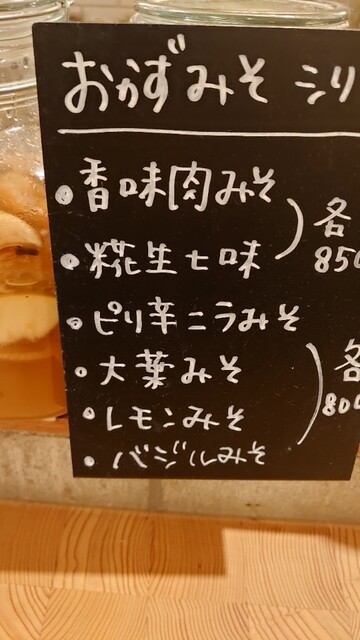 おかずみそ シリ
・香味肉みそ
・糀生七味
各
850
・ピリ辛ニラみそ
・大葉みそ
・レモンみそ
・バジルみそ
各
800